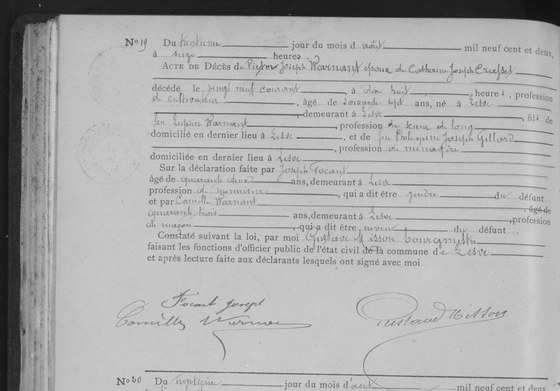 No 19 Du trentième jour du mois d août mil neuf cent et deux,
à seize heures
ACTE DE DÉCÈS de Pierre Joseph Warnant époux de Catherine Joseph
décédé le vingt neuf courant, à dix huit heures, profession
de cultivateur, âgé de soixante sept ans, né à Lesve
demeurant à Lesve, fils de
feu Warnant, profession de scieur de long
domicilié en dernier lieu à Lesve, et de feu Joseph Gillard
, profession de ménagère
domiciliée en dernier lieu à Lesve
Sur la déclaration faite par Joseph Focant
âgé de quarante ans, demeurant à Lesve
profession de menuisier, qui a dit être gendre du défunt
et par Camille Warnant, âgé de
quarante trois ans, demeurant à Lesve, profession
de maçon, qui a dit être neveu du défunt.
Constaté suivant la loi, par moi Gustave Misson bourgmestre
faisant les fonctions d'officier public de l'état civil de la commune de Lesve
et après lecture faite aux déclarants lesquels ont signé avec moi
Focant Joseph
Camille Warnant
Gustave Misson
No 20 Du jour du mois d'août mil neuf cent et deux